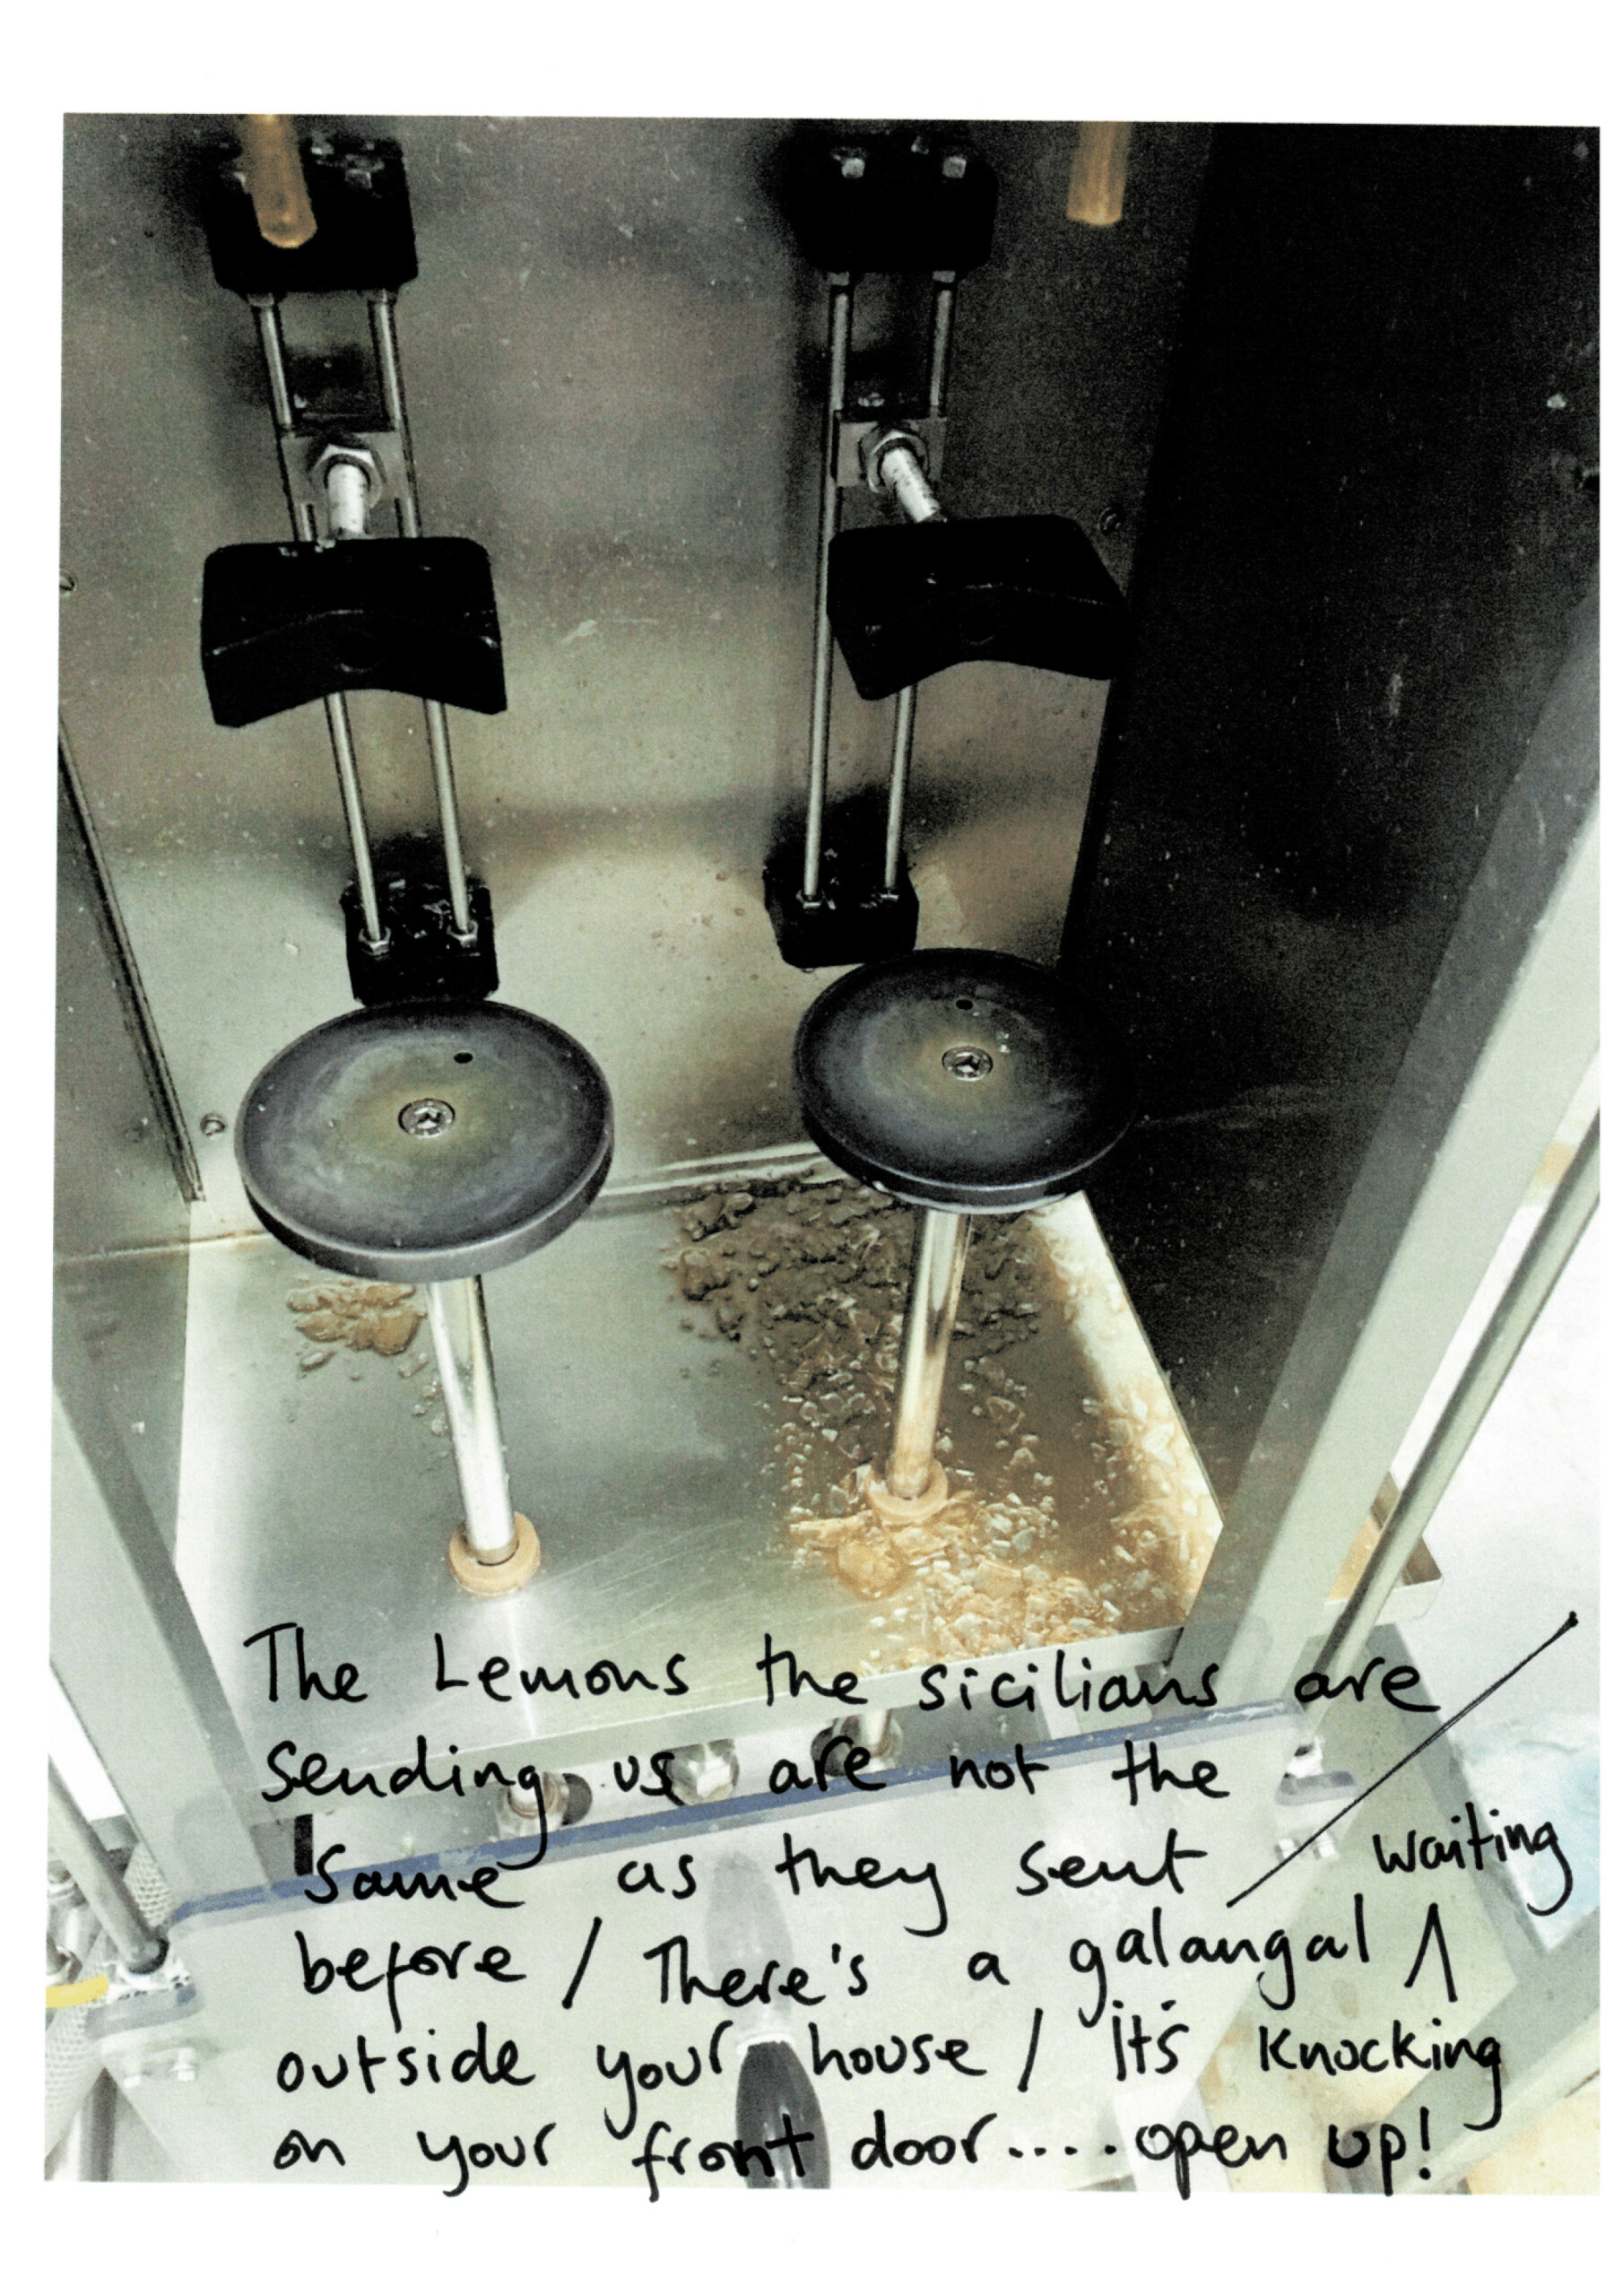 The Lemons the sicilians are
sending us are not the
same as they sent /
before / There's a galangal ∧ waiting
outside your house / it's knocking
on your front door.... open up!